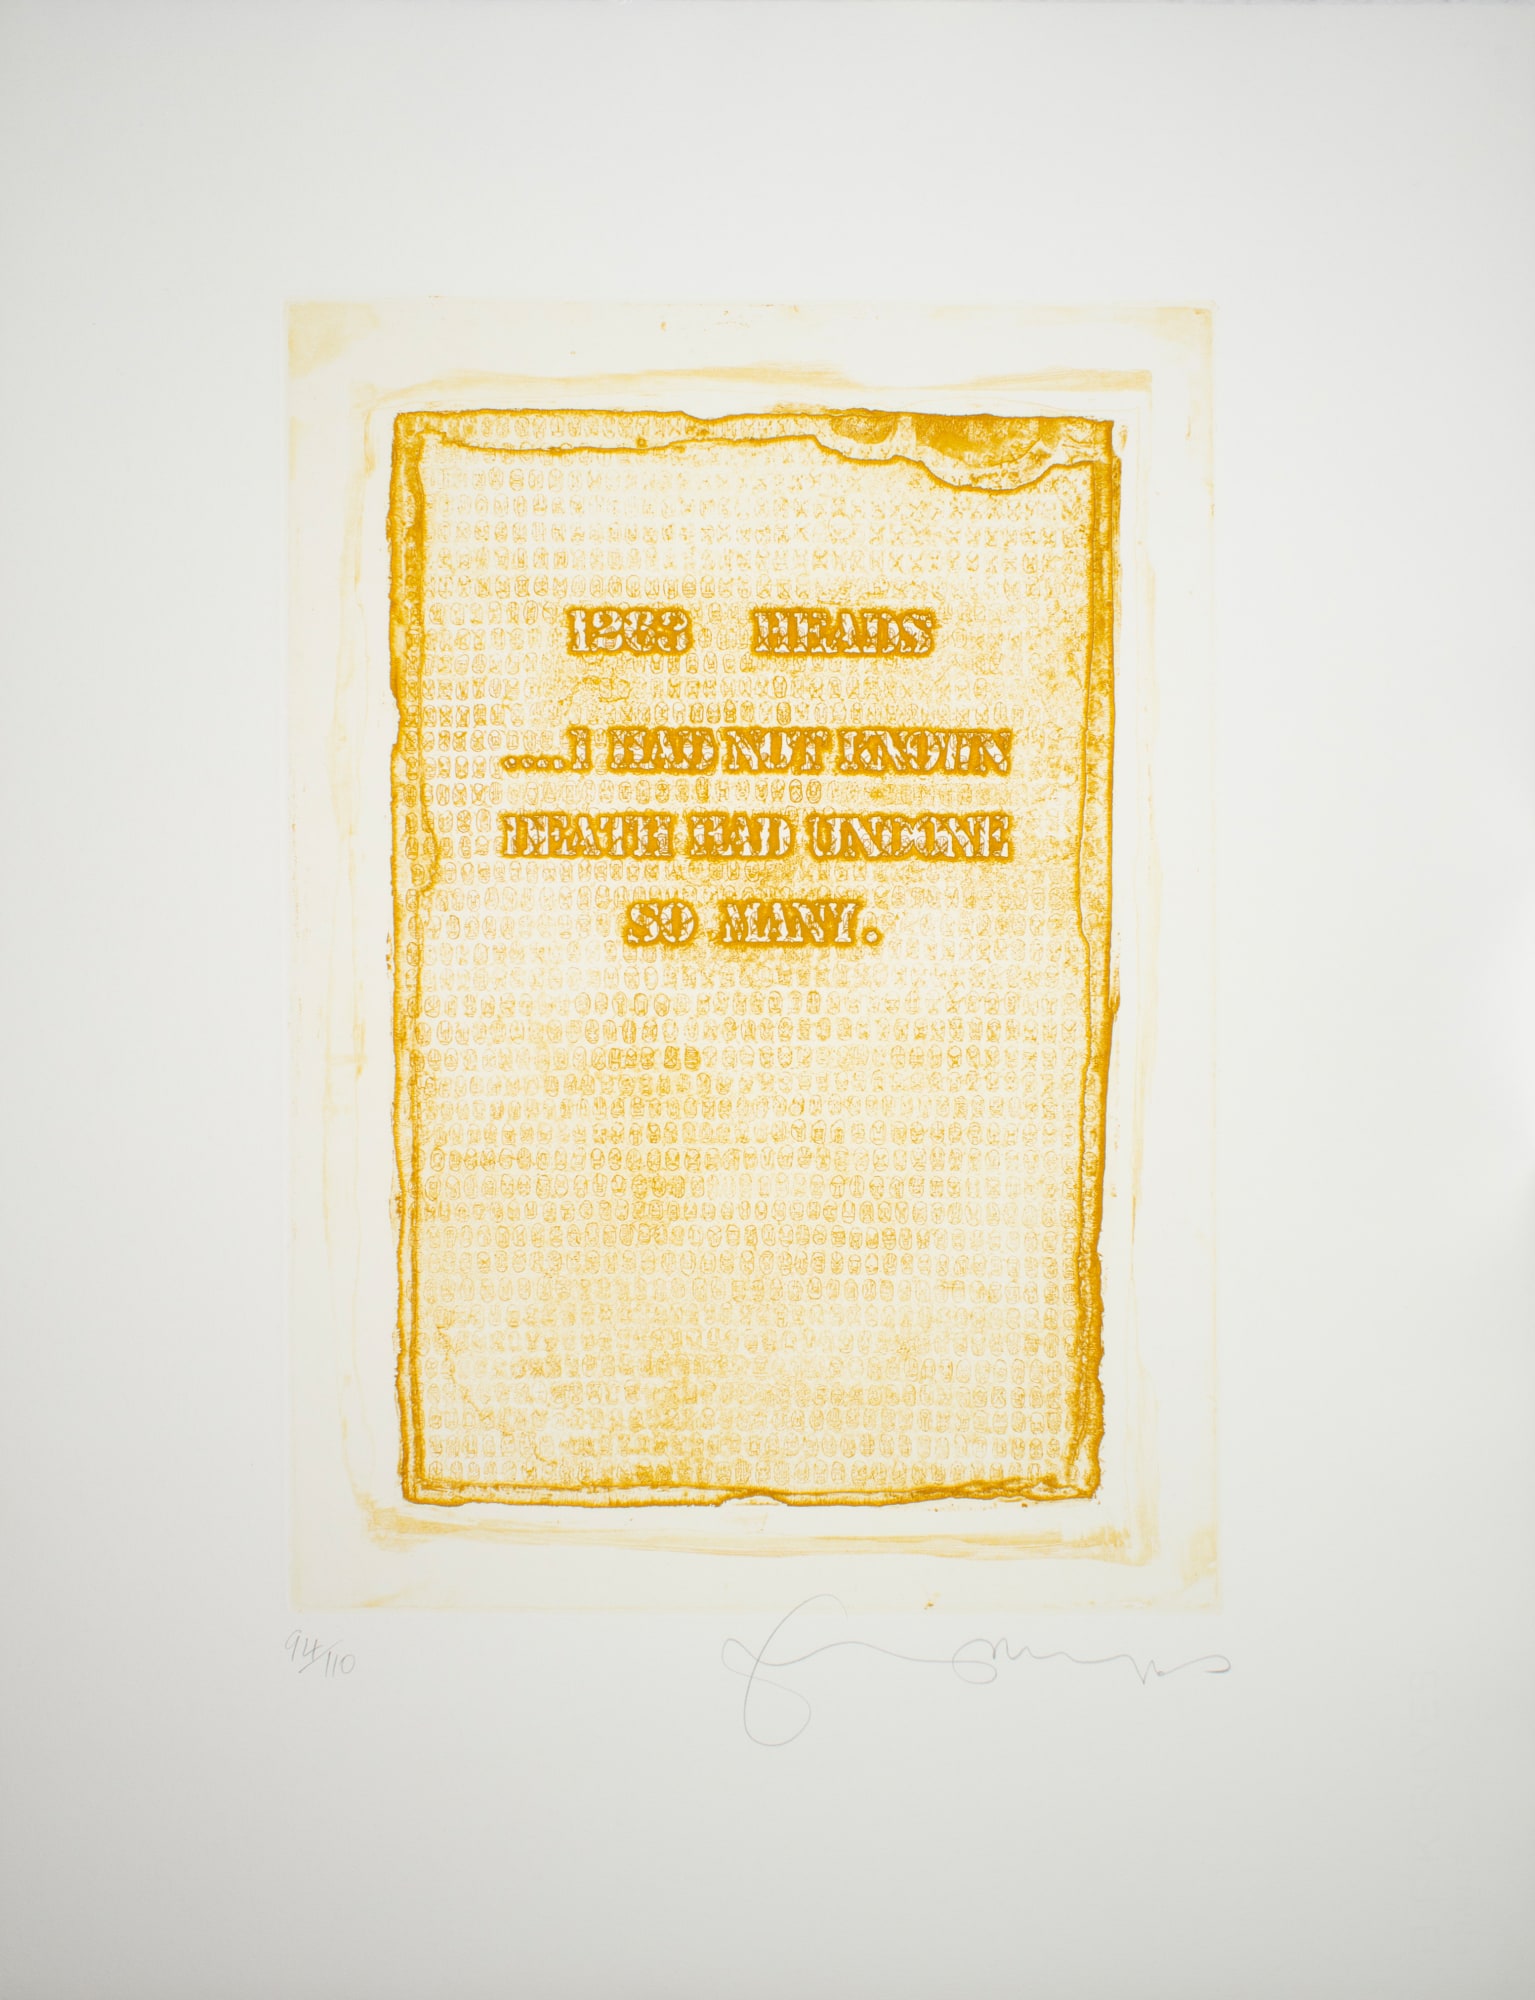 1263 HEADS
....I HAD NOT KNOWN
DEATH HAD UNDONE
SO MANY.
94/110